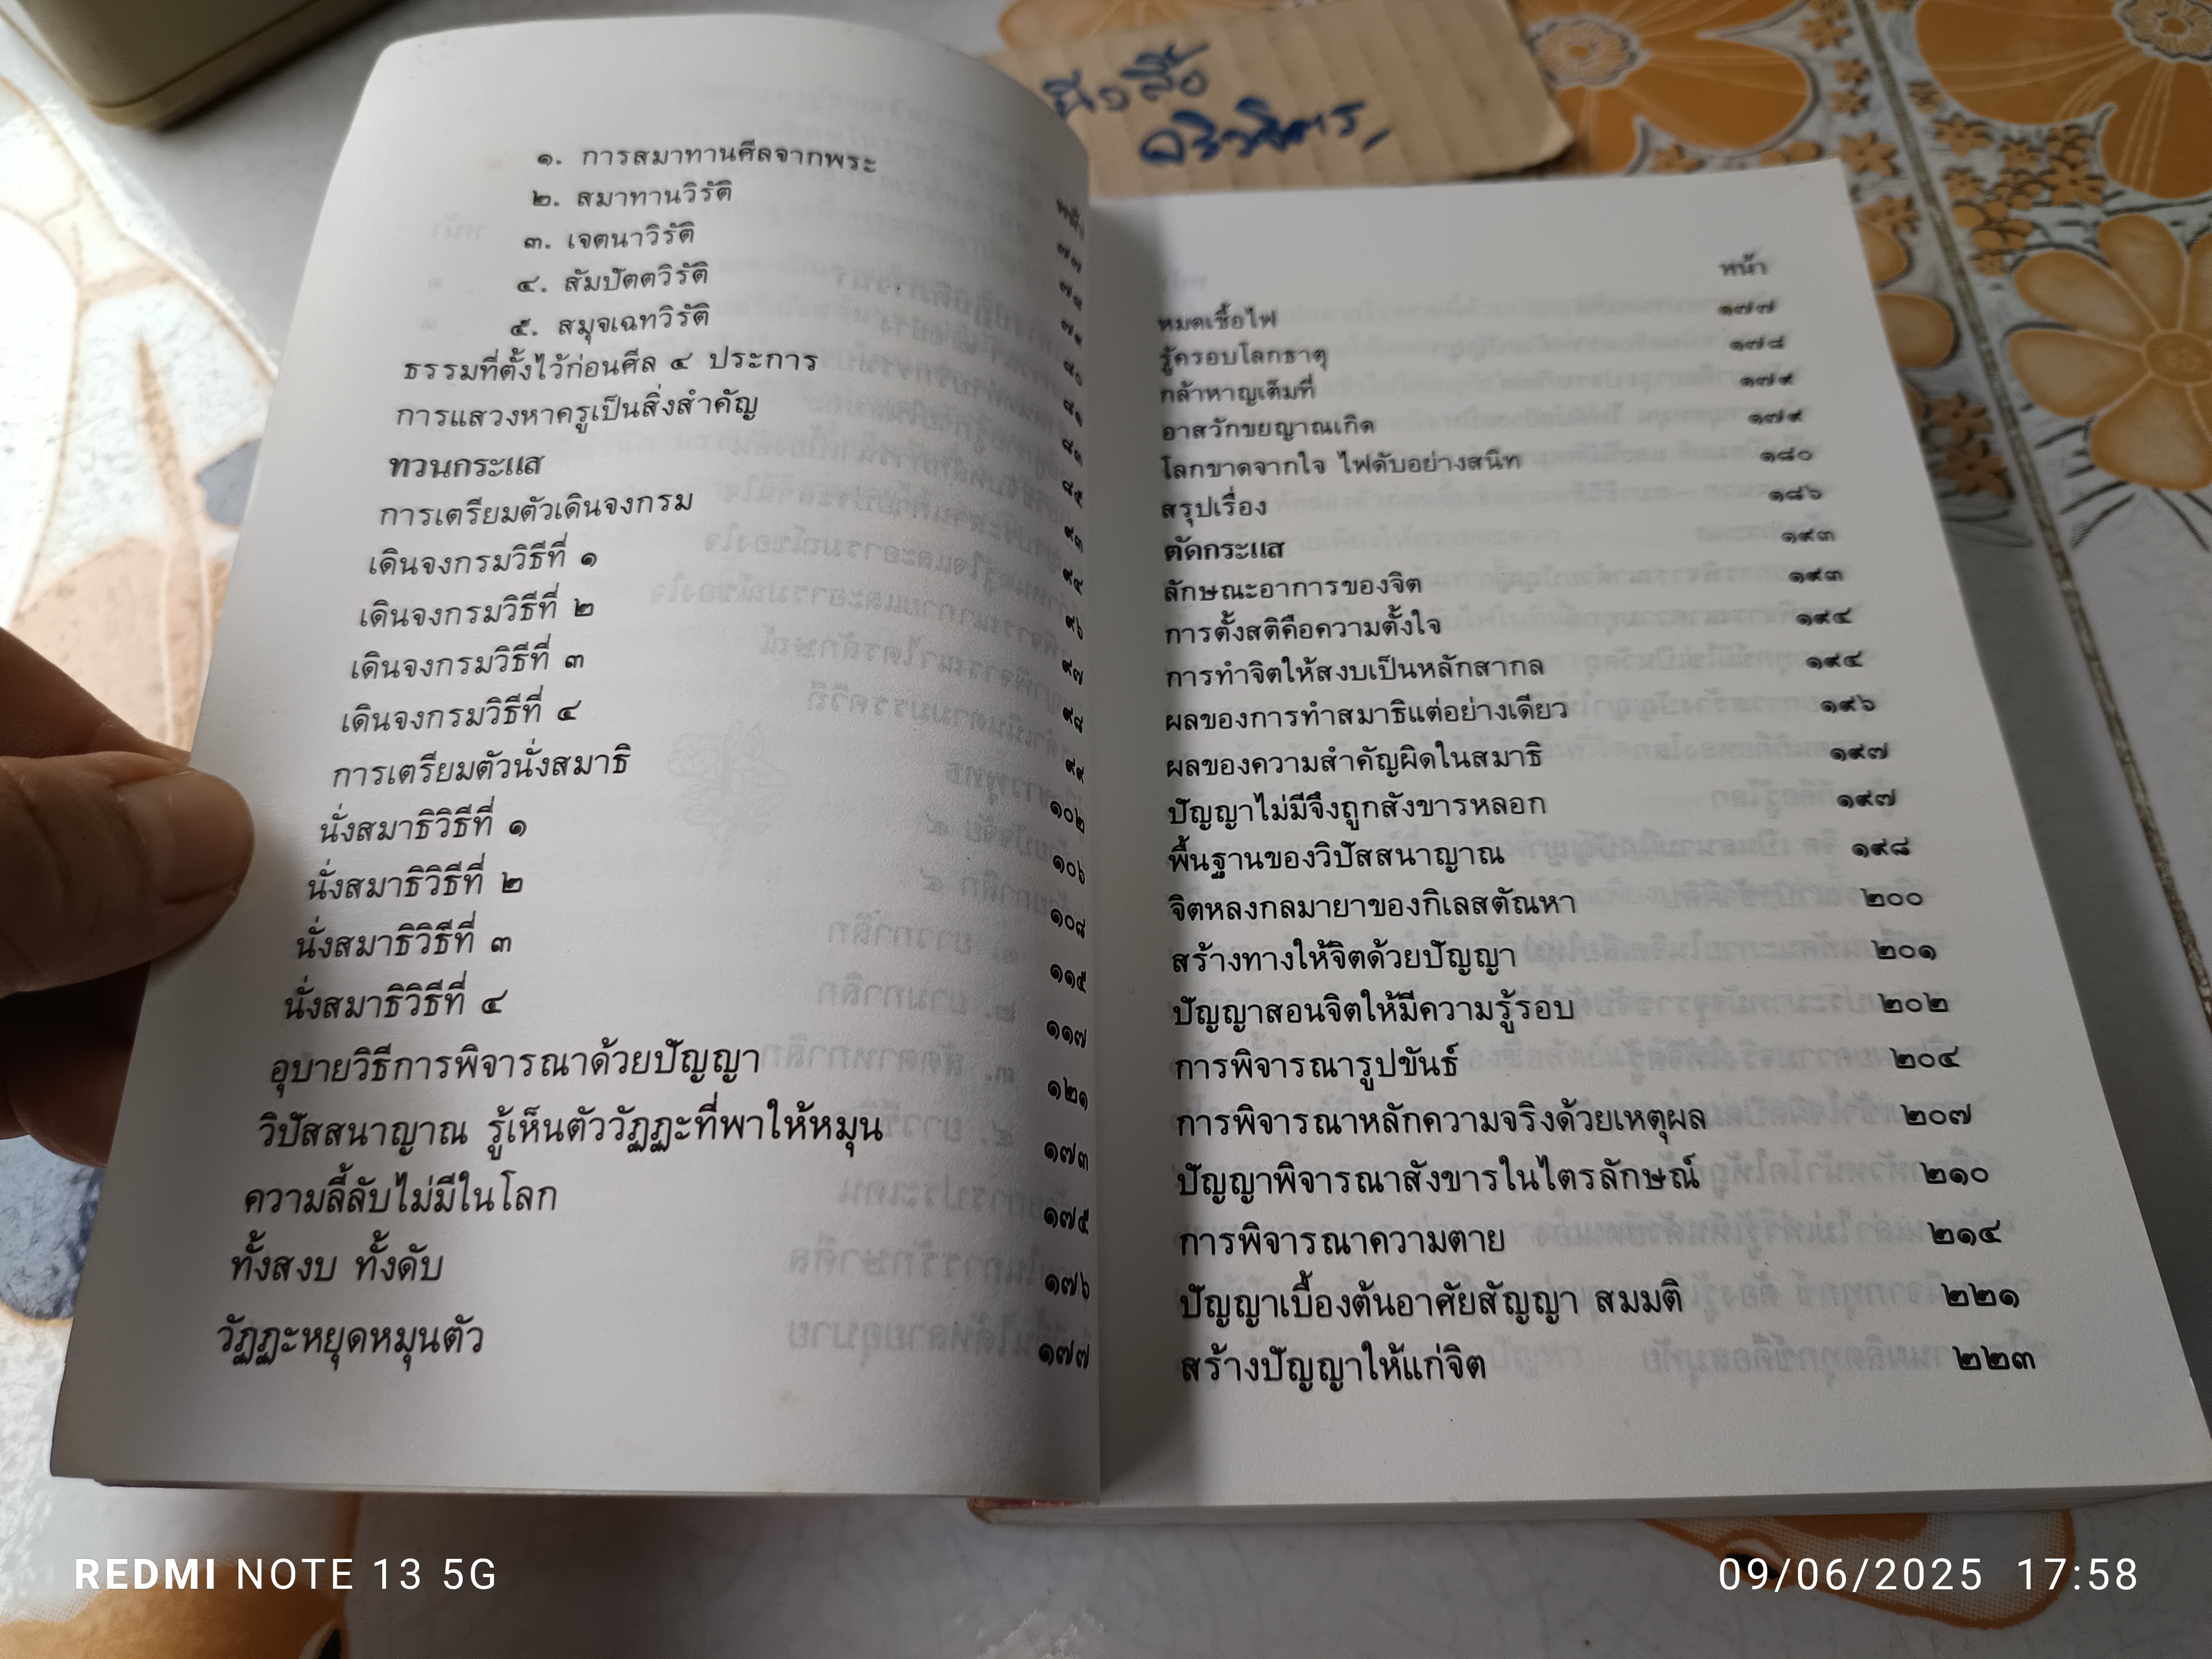 หน้า
๑. การสมาทานศีลจากพระ ๗๗
๒. สมาทานวิรัติ ๗๘
๓. เจตนาวิรัติ ๗๙
๔. สัมปัตตวิรัติ ๘๐
๕. สมุจเฉทวิรัติ ๘๑
ธรรมที่ตั้งไว้ก่อนศีล ๔ ประการ ๘๓
การแสวงหาครูเป็นสิ่งสำคัญ ๘๕
ทวนกระแส ๙๓
การเตรียมตัวเดินจงกรม ๙๔
เดินจงกรมวิธีที่ ๑ ๙๖
เดินจงกรมวิธีที่ ๒ ๙๗
เดินจงกรมวิธีที่ ๓ ๙๘
เดินจงกรมวิธีที่ ๔ ๙๙
การเตรียมตัวนั่งสมาธิ ๑๐๒
นั่งสมาธิวิธีที่ ๑ ๑๐๖
นั่งสมาธิวิธีที่ ๒ ๑๐๘
นั่งสมาธิวิธีที่ ๓ ๑๑๕
นั่งสมาธิวิธีที่ ๔ ๑๑๗
อุบายวิธีการพิจารณาด้วยปัญญา ๑๒๑
วิปัสสนาญาณ รู้เห็นตัววัฏฏะที่พาให้หมุน ๑๗๓
ความลี้ลับไม่มีในโลก ๑๗๕
ทั้งสงบ ทั้งดับ ๑๗๖
วัฏฏะหยุดหมุนตัว ๑๗๗
หน้า
หมดเชื้อไฟ ๑๗๗
รู้ครอบโลกธาตุ ๑๗๘
กล้าหาญเต็มที่ ๑๗๙
อาสวักขยญาณเกิด ๑๗๙
โลกขาดจากใจ ไฟดับอย่างสนิท ๑๘๐
สรุปเรื่อง ๑๘๖
ตัดกระแส ๑๙๓
ลักษณะอาการของจิต ๑๙๓
การตั้งสติคือความตั้งใจ ๑๙๔
การทำจิตให้สงบเป็นหลักสากล ๑๙๔
ผลของการทำสมาธิแต่อย่างเดียว ๑๙๖
ผลของความสำคัญผิดในสมาธิ ๑๙๗
ปัญญาไม่มีจึงถูกสังขารหลอก ๑๙๗
พื้นฐานของวิปัสสนาญาณ ๑๙๘
จิตหลงกลมายาของกิเลสตัณหา ๒๐๐
สร้างทางให้จิตด้วยปัญญา ๒๐๑
ปัญญาสอนจิตให้มีความรู้รอบ ๒๐๒
การพิจารณารูปขันธ์ ๒๐๔
การพิจารณาหลักความจริงด้วยเหตุผล ๒๐๗
ปัญญาพิจารณาสังขารในไตรลักษณ์ ๒๑๐
การพิจารณาความตาย ๒๑๔
ปัญญาเบื้องต้นอาศัยสัญญา สมมติ ๒๒๑
สร้างปัญญาให้แก่จิต ๒๒๓
REDMI NOTE 13 5G
09/06/2025 17:58